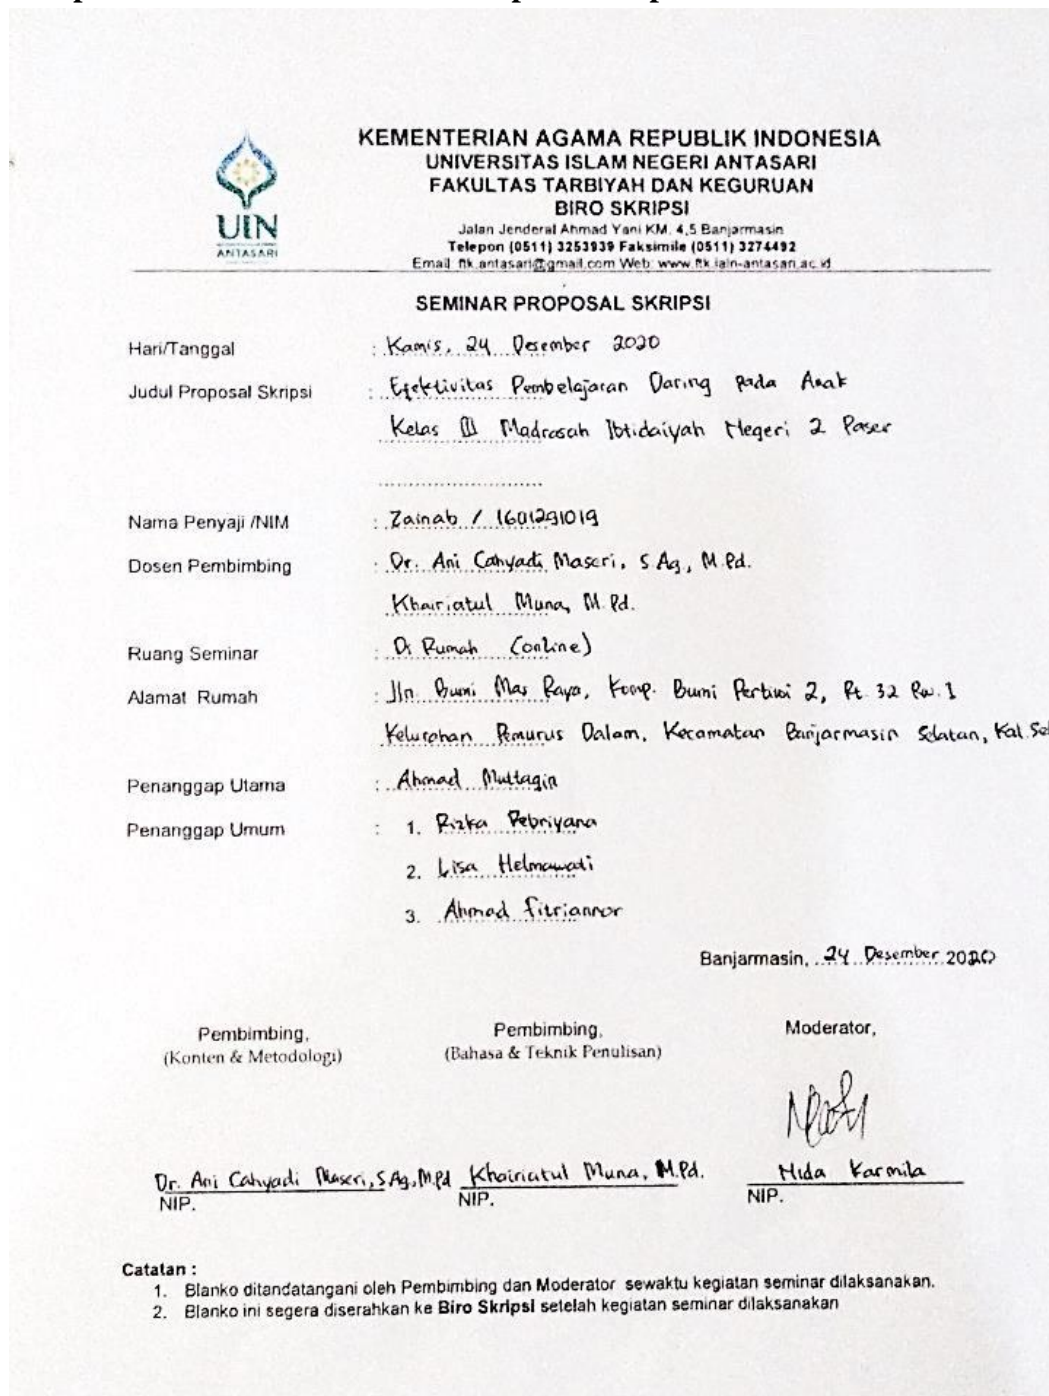 UIN
ANTASARI
KEMENTERIAN AGAMA REPUBLIK INDONESIA
UNIVERSITAS ISLAM NEGERI ANTASARI
FAKULTAS TARBIYAH DAN KEGURUAN
BIRO SKRIPSI
Jalan Jenderal Ahmad Yani KM. 4,5 Banjarmasin
Telepon (0511) 3253939 Faksimile (0511) 3274492
Email: ftk.antasari@gmail.com Web: www.ftk.iain-antasari.ac.id
SEMINAR PROPOSAL SKRIPSI
Hari/Tanggal : Kamis, 24 Desember 2020
Judul Proposal Skripsi : Efektivitas Pembelajaran Daring pada Anak
Kelas III Madrasah Ibtidaiyah Negeri 2 Paser
Nama Penyaji /NIM : Zainab / 1601291019
Dosen Pembimbing : Dr. Ani Cahyadi Maseri, S.Ag, M.Pd.
Khairiatul Muna, M.Pd.
Ruang Seminar : Di Rumah (online)
Alamat Rumah : Jln. Bumi Mas Raya, Komp. Bumi Pertiwi 2, Rt. 32 Rw. 1
Kelurahan Pemurus Dalam, Kecamatan Banjarmasin Selatan, Kal.Sel
Penanggap Utama : Ahmad Muttaqin
Penanggap Umum : 1. Rizka Pebriyana
2. Lisa Helmawati
3. Ahmad Fitriannor
Banjarmasin, 24 Desember 2020
Pembimbing, Pembimbing, Moderator,
(Konten & Metodologi) (Bahasa & Teknik Penulisan)
Dr. Ani Cahyadi Maseri, S.Ag, M.Pd Khairiatul Muna, M.Pd. Hida Karmila
NIP. NIP. NIP.
Catatan :
1. Blanko ditandatangani oleh Pembimbing dan Moderator sewaktu kegiatan seminar dilaksanakan.
2. Blanko ini segera diserahkan ke Biro Skripsi setelah kegiatan seminar dilaksanakan